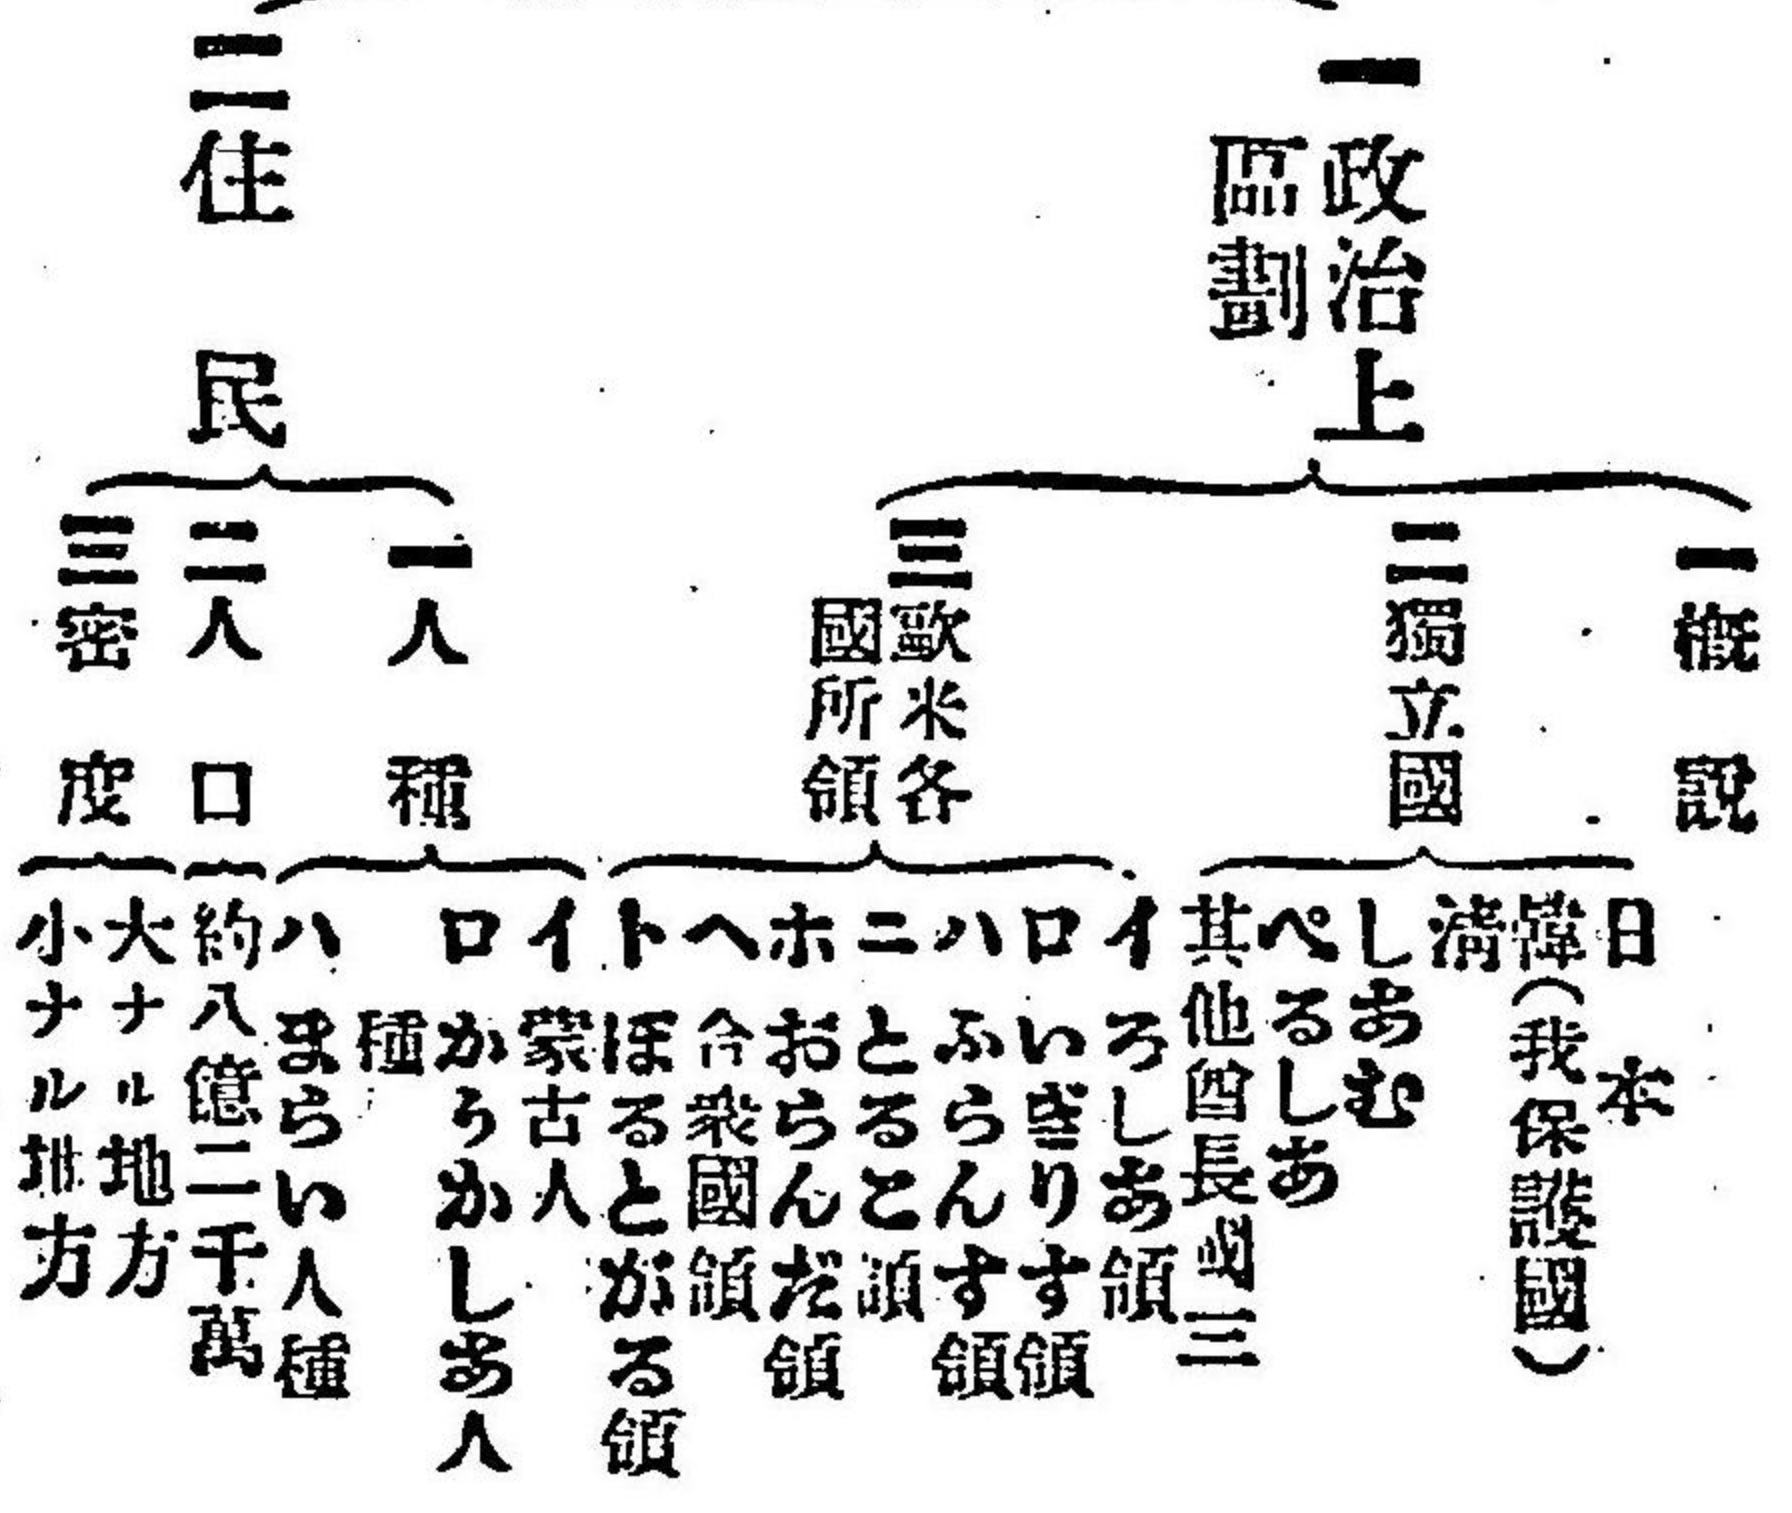 一政治上
區劃
一概説
二獨立國
日本
韓(我保護國)
清
しあむ
ぺるしあ
其他酋長國三
三歐米各
國所領
イろしあ領
ロいぎりす領
ハふらんす領
ニとるこ領
ホおらんだ領
ヘ合衆國領
トほるとがる領
二住民
一人種
イ蒙古人
種
ロかうかしあ人
ハまらい人種
二人口
約八億二千萬
三密度
大ナル地方
小ナル地方